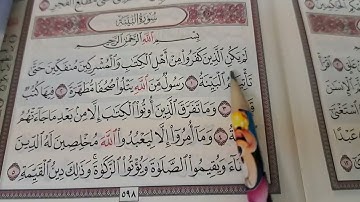 سُورَةُ البَيِّنَةِ
بِسْمِ اللَّهِ الرَّحْمَٰنِ الرَّحِيمِ
لَمْ يَكُنِ الَّذِينَ كَفَرُوا مِنْ أَهْلِ الْكِتَابِ وَالْمُشْرِكِينَ مُنفَكِّينَ حَتَّىٰ
الْبَيِّنَةُ ١ رَسُولٌ مِّنَ اللَّهِ يَتْلُوا صُحُفًا مُّطَهَّرَةً ٢ فِيهَا كُتُبٌ
٣ وَمَا تَفَرَّقَ الَّذِينَ أُوتُوا الْكِتَابَ إِلَّا مِن بَعْدِ مَا جَاءَتْهُمُ
٤ وَمَا أُمِرُوا إِلَّا لِيَعْبُدُوا اللَّهَ مُخْلِصِينَ لَهُ الدِّينَ
وَيُقِيمُوا الصَّلَوٰةَ وَيُؤْتُوا الزَّكَوٰةَ وَذَٰلِكَ دِينُ الْقَيِّمَةِ ٥
٥٩٨